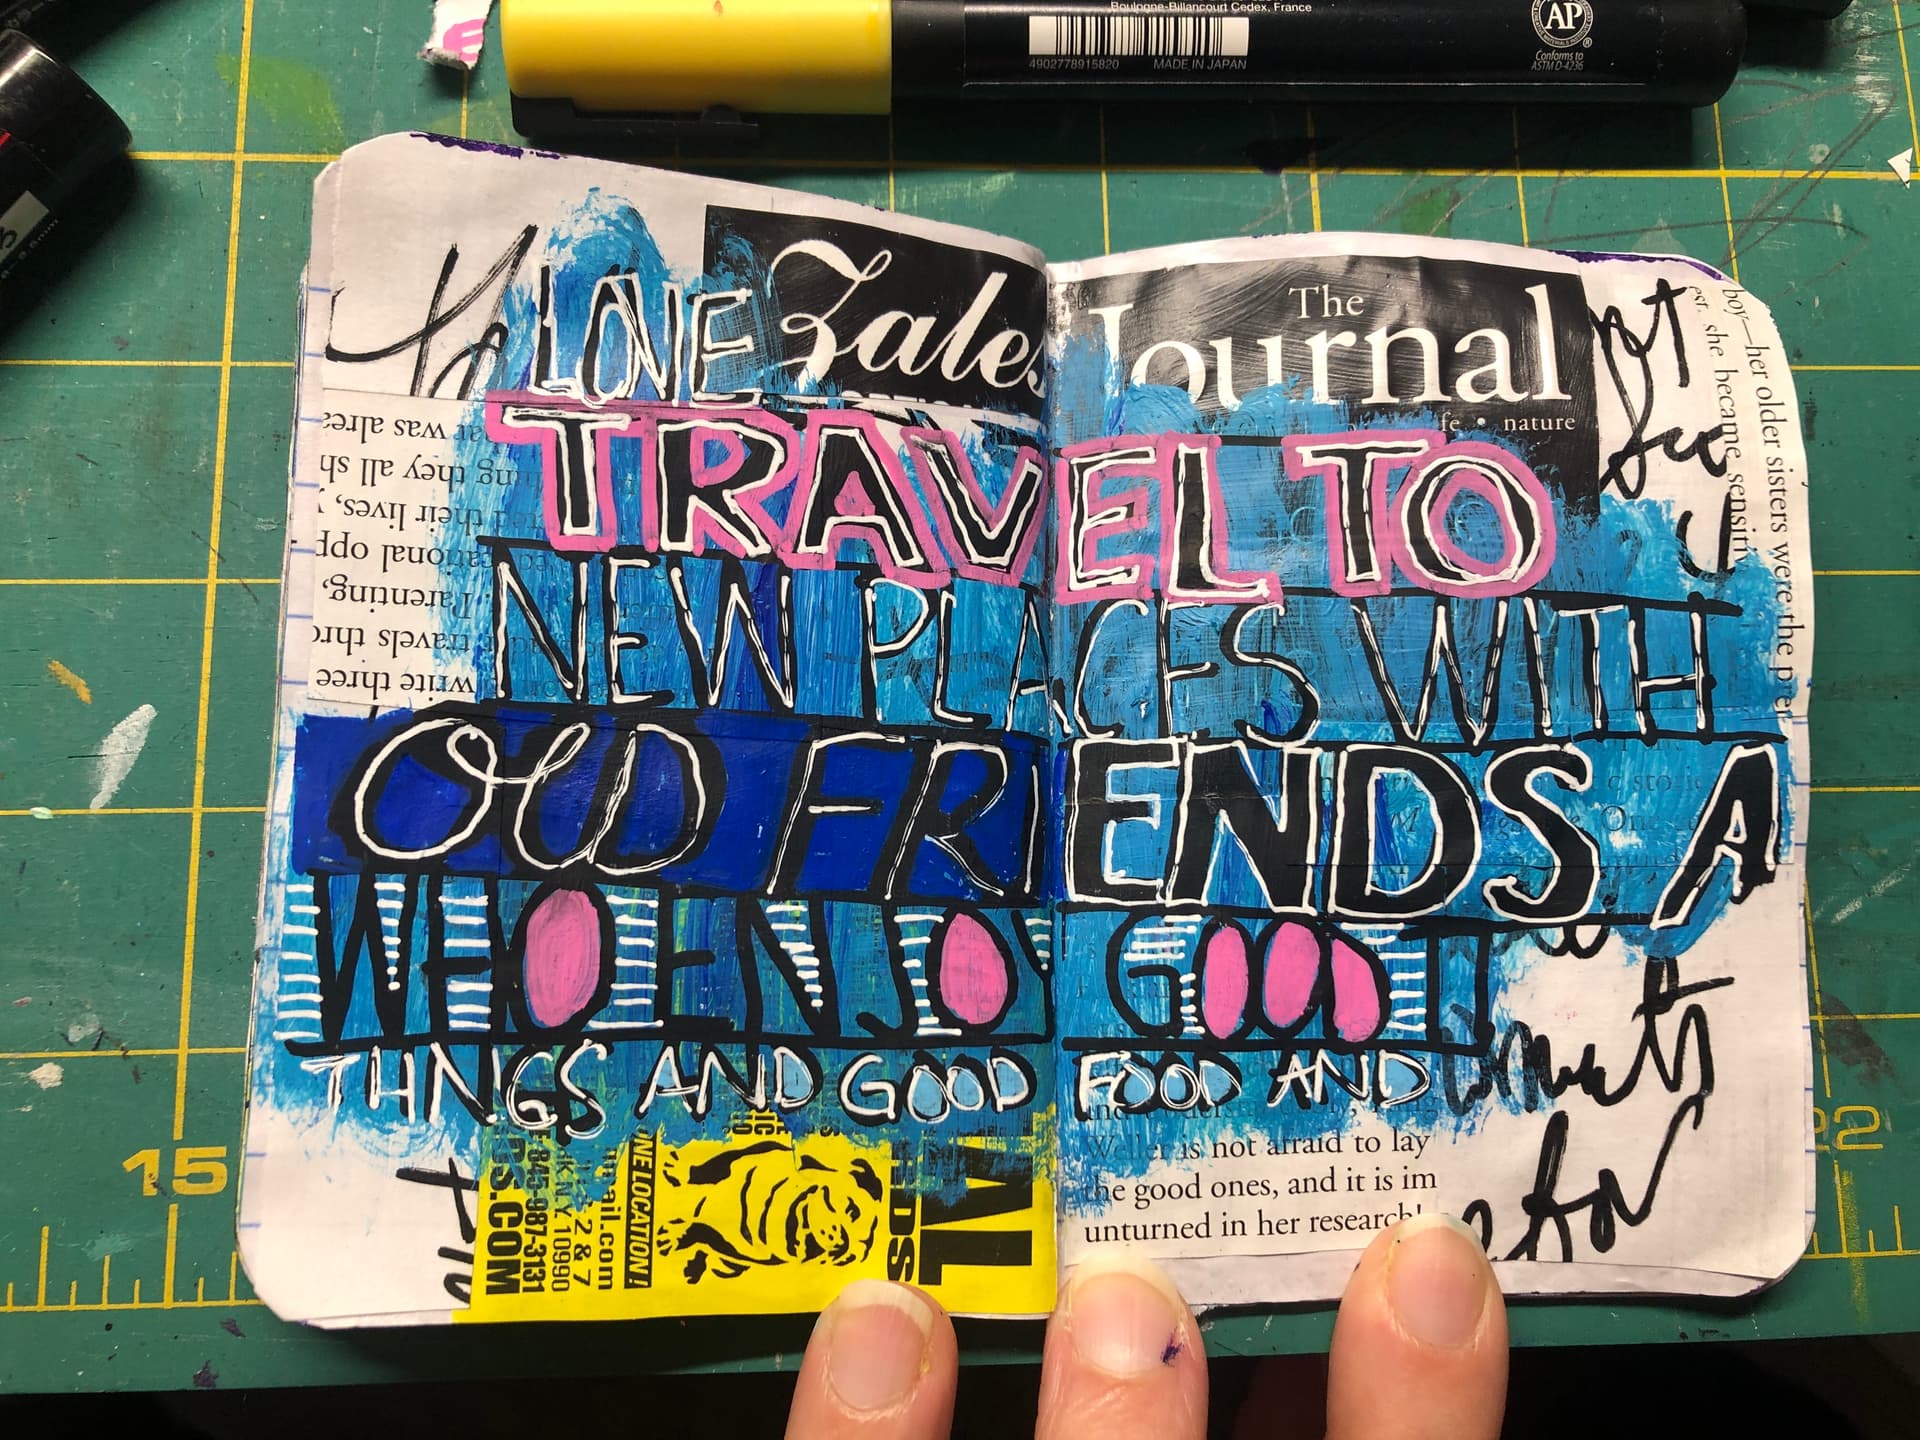 Boulogne-Billancourt Cedex, France
4902778915820 MADE IN JAPAN
AP
Conforms to
ASTM D-4236
Zales
The
Journal
fe • nature
LOVE
TRAVEL TO
NEW PLACES WITH
OLD FRIENDS A
WHO ENJOY GOOD
THNGS AND GOOD FOOD AND
boy—her older sisters were the
est. she became sensitiv
was alrea
they all sh
their lives,
ational opp
Parenting,
travels thro
write three
DS.COM
845-987-3131
NY 10990
2 & 7
mail.com
NE LOCATION!
AL
DS
Weller is not afraid to lay
the good ones, and it is im
unturned in her research
for
15
22